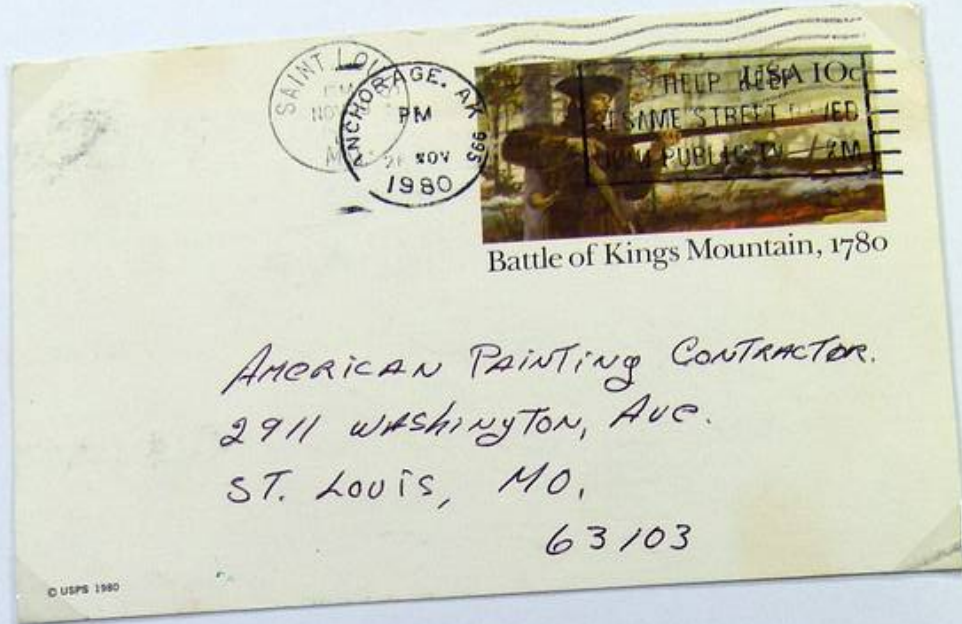 SAINT LOUIS
NOV
ANCHORAGE, AK 995
PM
NOV
1980
USA 10c
HELP KEEP
SESAME STREET
PUBLIC TV
Battle of Kings Mountain, 1780
AMERICAN PAINTING CONTRACTOR.
2911 WASHINGTON, AVE.
ST. LOUIS, MO.
63103
© USPS 1980